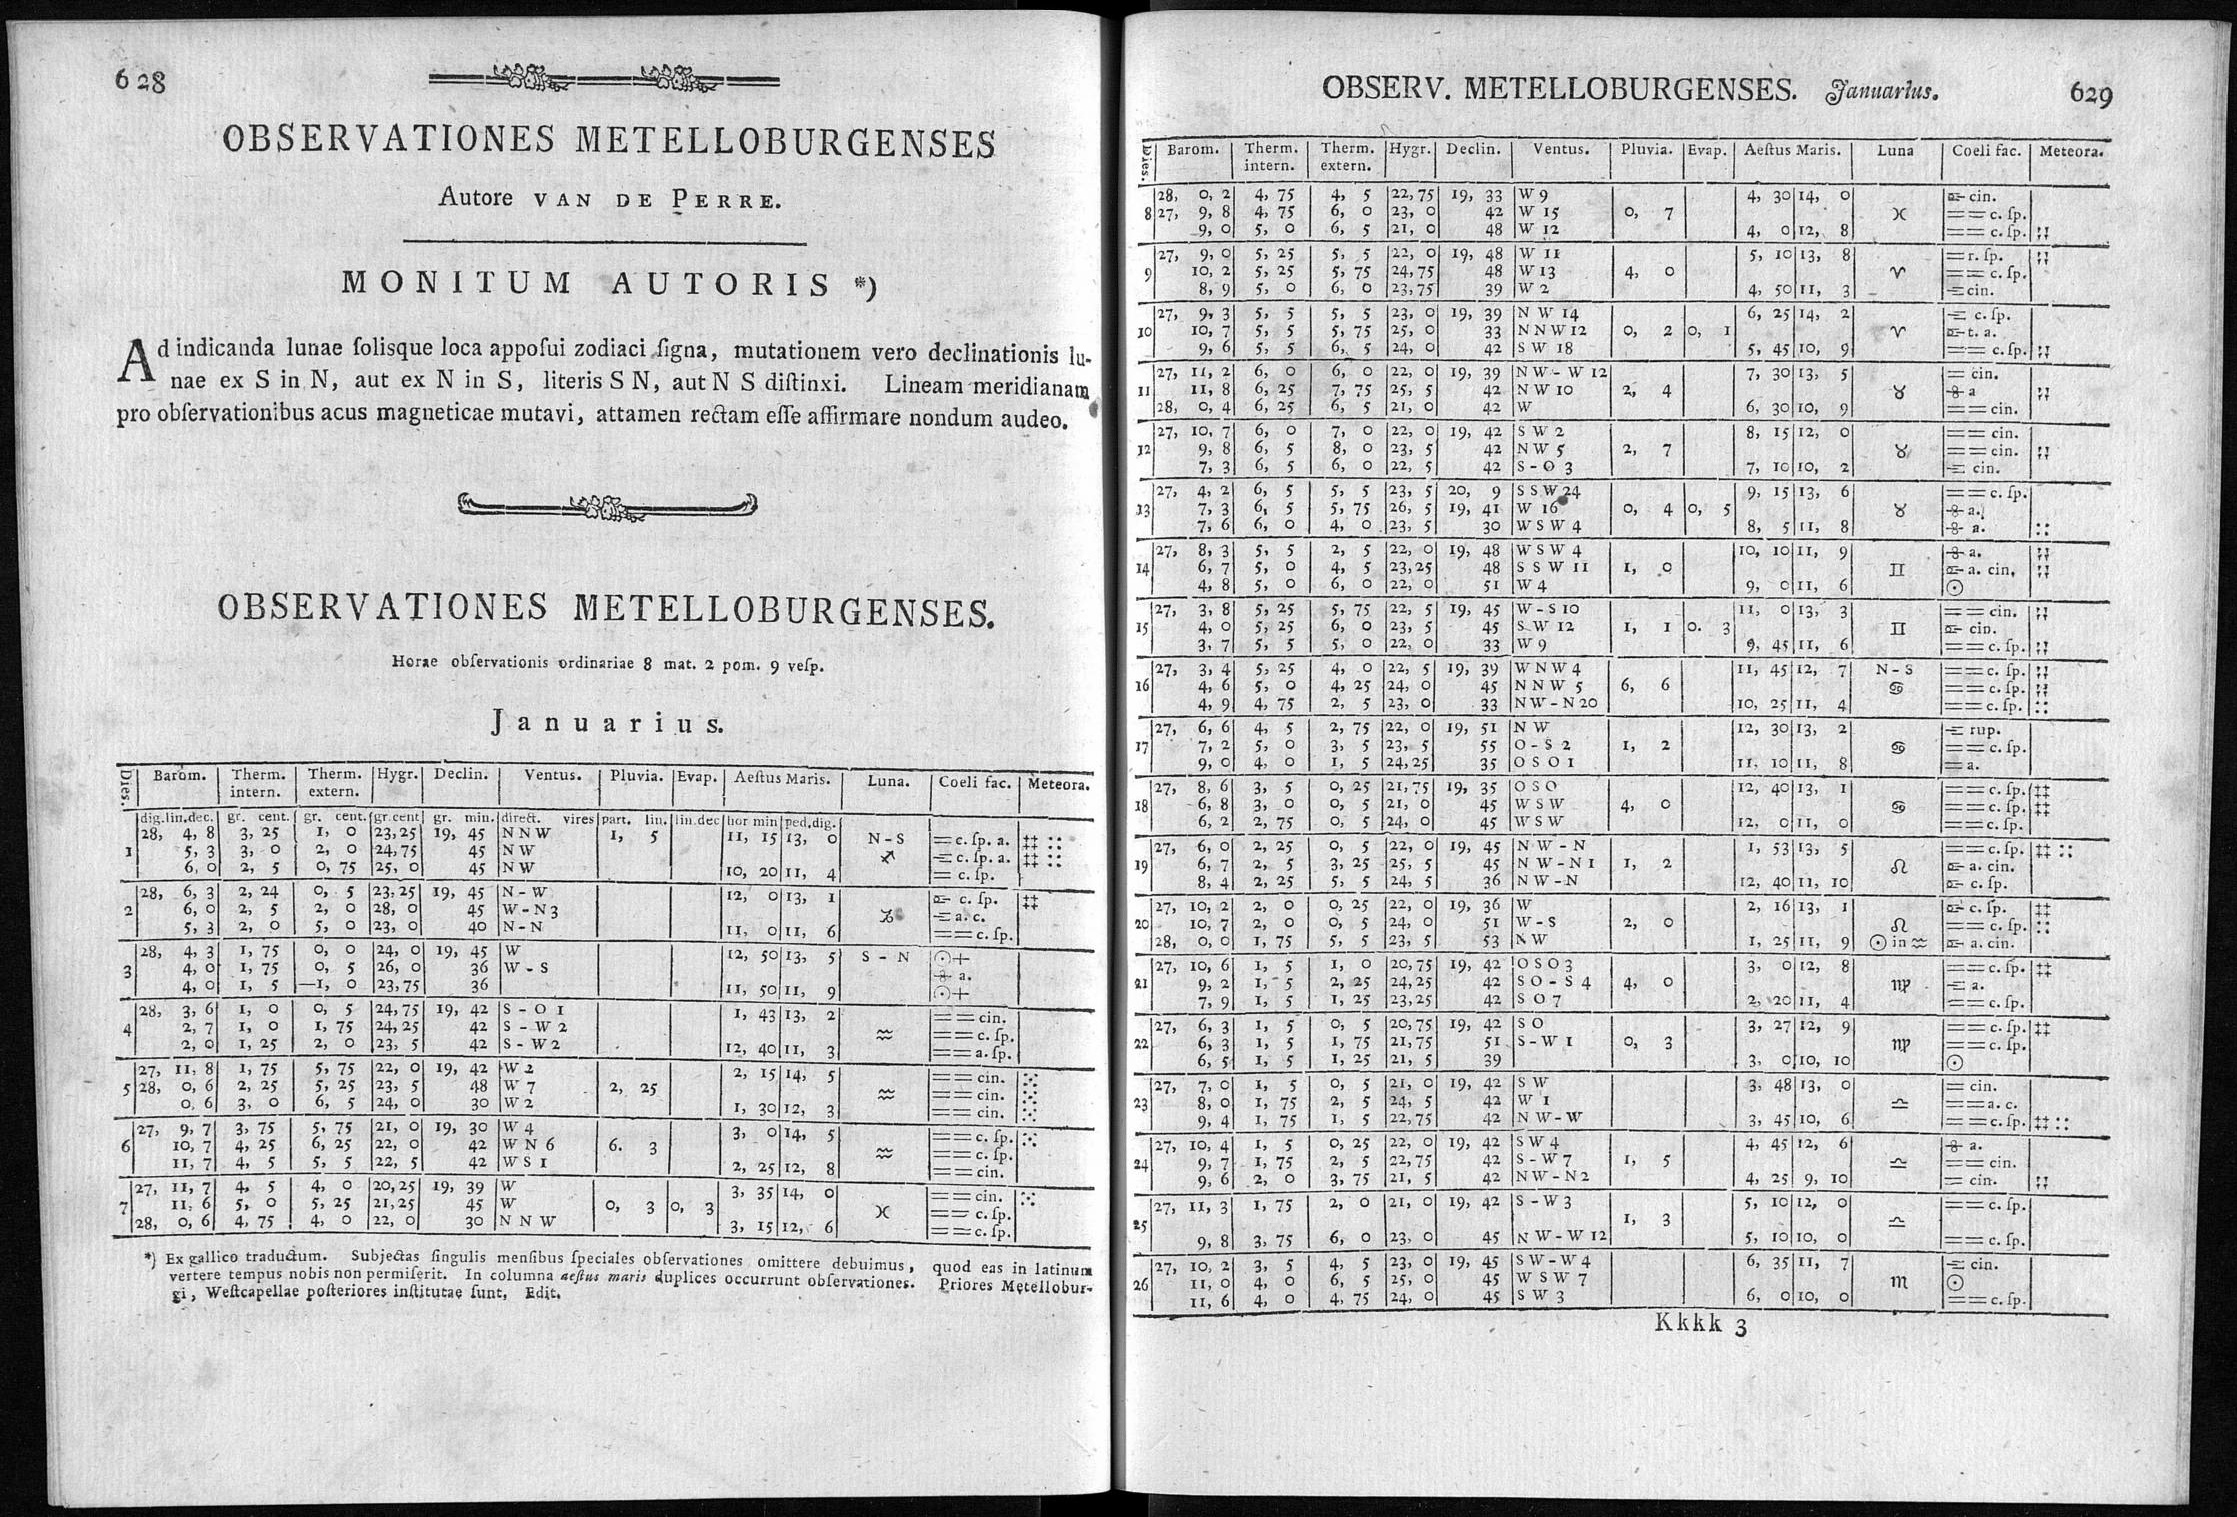 628
OBSERVATIONES METELLOBURGENSES
Autore VAN DE PERRE.
MONITUM AUTORIS *)
Ad indicanda lunae ſolisque loca appoſui zodiaci ſigna, mutationem vero declinationis lu-
nae ex S in N, aut ex N in S, literis S N, aut N S diſtinxi. Lineam meridianam
pro obſervationibus acus magneticae mutavi, attamen rectam eſſe affirmare nondum audeo.
OBSERVATIONES METELLOBURGENSES.
Horae obſervationis ordinariae 8 mat. 2 pom. 9 veſp.
Januarius.
Dies. Barom. Therm. intern. Therm. extern. Hygr. Declin. Ventus. Pluvia. Evap. Aeſtus Maris. Luna. Coeli fac. Meteora.
dig.lin.dec. gr. cent. gr. cent. gr.cent gr. min. direct. vires part. lin. lin.dec hor min ped.dig.
28, 4, 8 3, 25 1, 0 23,25 19, 45 NNW 1, 5 11, 15 13, 0 N-S == c. ſp. a. ‡‡ ::
1 5, 3 3, 0 2, 0 24,75 45 NW ♐ c. ſp. a. ‡‡ ::
6, 0 2, 5 0, 75 25, 0 45 NW 10, 20 11, 4 = c. ſp.
28, 6, 3 2, 24 0, 5 23,25 19, 45 N-W 12, 0 13, 1 c. ſp. ‡‡
2 6, 0 2, 5 2, 0 28, 0 45 W-N3 ♑ a. c.
5, 3 2, 0 5, 0 23, 0 40 N-N 11, 0 11, 6 == c. ſp.
28, 4, 3 1, 75 0, 0 24, 0 19, 45 W 12, 50 13, 5 S - N ☉+
3 4, 0 1, 75 0, 5 26, 0 36 W-S a.
4, 0 1, 5 —1, 0 23,75 36 11, 50 11, 9 ☉+
28, 3, 6 1, 0 0, 5 24,75 19, 42 S-O 1 1, 43 13, 2 == cin.
4 2, 7 1, 0 1, 75 24,25 42 S-W 2 ♒ == c. ſp.
2, 0 1, 25 2, 0 23, 5 42 S-W2 12, 40 11, 3 == a. ſp.
27, 11, 8 1, 75 5, 75 22, 0 19, 42 W 2 2, 15 14, 5 == cin.
5 28, 0, 6 2, 25 5, 25 23, 5 48 W 7 2, 25 ♒ == cin.
0, 6 3, 0 6, 5 24, 0 30 W 2 1, 30 12, 3 == cin.
27, 9, 7 3, 75 5, 75 21, 0 19, 30 W 4 3, 0 14, 5 == c. ſp.
6 10, 7 4, 25 6, 25 22, 0 42 W N 6 6. 3 ♒ == c. ſp.
11, 7 4, 5 5, 5 22, 5 42 W S 1 2, 25 12, 8 == cin.
27, 11, 7 4, 5 4, 0 20,25 19, 39 W 3, 35 14, 0 == cin.
7 11, 6 5, 0 5, 25 21,25 45 W 0, 3 0, 3 ♓ == c. ſp.
28, 0, 6 4, 75 4, 0 22, 0 30 NNW 3, 15 12, 6 == c. ſp.
*) Ex gallico traductum. Subjectas ſingulis menſibus ſpeciales obſervationes omittere debuimus, quod eas in latinum
vertere tempus nobis non permiſerit. In columna aeſtus maris duplices occurrunt obſervationes. Priores Metellobur-
gi, Weſtcapellae poſteriores inſtitutae ſunt, Edit.
OBSERV. METELLOBURGENSES. Januarius. 629
Dies. Barom. Therm. intern. Therm. extern. Hygr. Declin. Ventus. Pluvia. Evap. Aeſtus Maris. Luna Coeli fac. Meteora.
28, 0, 2 4, 75 4, 5 22,75 19, 33 W 9 4, 30 14, 0 cin.
8 27, 9, 8 4, 75 6, 0 23, 0 42 W 15 0, 7 ♓ == c. ſp.
9, 0 5, 0 6, 5 21, 0 48 W 12 4, 0 12, 8 == c. ſp.
27, 9, 0 5, 25 5, 5 22, 0 19, 48 W 11 5, 10 13, 8 = r. ſp.
9 10, 2 5, 25 5, 75 24,75 48 W 13 4, 0 ♈ == c. ſp.
8, 9 5, 0 6, 0 23,75 39 W 2 4, 50 11, 3 cin.
27, 9, 3 5, 5 5, 5 23, 0 19, 39 N W 14 6, 25 14, 2 c. ſp.
10 10, 7 5, 5 5, 75 25, 0 33 NNW12 0, 2 0, 1 ♈ t. a.
9, 6 5, 5 6, 5 24, 0 42 S W 18 5, 45 10, 9 == c. ſp.
27, 11, 2 6, 0 6, 0 22, 0 19, 39 NW-W 12 7, 30 13, 5 = cin.
11 11, 8 6, 25 7, 75 25, 5 42 NW 10 2, 4 ♉ a
28, 0, 4 6, 25 6, 5 21, 0 42 W 6, 30 10, 9 == cin.
27, 10, 7 6, 0 7, 0 22, 0 19, 42 S W 2 8, 15 12, 0 == cin.
12 9, 8 6, 5 8, 0 23, 5 42 NW 5 2, 7 ♉ == cin.
7, 3 6, 5 6, 0 22, 5 42 S-O 3 7, 10 10, 2 cin.
27, 4, 2 6, 5 5, 5 23, 5 20, 9 SSW24 9, 15 13, 6 == c. ſp.
13 7, 3 6, 5 5, 75 26, 5 19, 41 W 16 0, 4 0, 5 ♉ a.
7, 6 6, 0 4, 0 23, 5 30 WSW 4 8, 5 11, 8 a. ::
27, 8, 3 5, 5 2, 5 22, 0 19, 48 WSW 4 10, 10 11, 9 a.
14 6, 7 5, 0 4, 5 23,25 48 SSW 11 1, 0 ♊ a. cin,
4, 8 5, 0 6, 0 22, 0 51 W 4 9, 0 11, 6 ☉
27, 3, 8 5, 25 5, 75 22, 5 19, 45 W-S 10 11, 0 13, 3 == cin.
15 4, 0 5, 25 6, 0 23, 5 45 S-W 12 1, 1 0. 3 ♊ cin.
3, 7 5, 5 5, 0 22, 0 33 W 9 9, 45 11, 6 == c. ſp.
27, 3, 4 5, 25 4, 0 22, 5 19, 39 WNW 4 11, 45 12, 7 N-S == c. ſp.
16 4, 6 5, 0 4, 25 24, 0 45 NNW 5 6, 6 ♋ == c. ſp.
4, 9 4, 75 2, 5 23, 0 33 NW-N 20 10, 25 11, 4 == c. ſp. ::
27, 6, 6 4, 5 2, 75 22, 0 19, 51 NW 12, 30 13, 2 rup.
17 7, 2 5, 0 3, 5 23, 5 55 O-S 2 1, 2 ♋ == c. ſp.
9, 0 4, 0 1, 5 24,25 35 OSO 1 11, 10 11, 8 = a.
27, 8, 6 3, 5 0, 25 21,75 19, 35 OSO 12, 40 13, 1 == c. ſp. ‡‡
18 6, 8 3, 0 0, 5 21, 0 45 WSW 4, 0 ♋ == c. ſp. ‡‡
6, 2 2, 75 0, 5 24, 0 45 WSW 12, 0 11, 0 == c. ſp.
27, 6, 0 2, 25 0, 5 22, 0 19, 45 NW-N 1, 53 13, 5 == c. ſp. ‡‡ ::
19 6, 7 2, 5 3, 25 25, 5 45 NW-N 1 1, 2 ♌ a. cin.
8, 4 2, 25 5, 5 24, 5 36 NW-N 12, 40 11, 10 c. ſp.
27, 10, 2 2, 0 0, 25 22, 0 19, 36 W 2, 16 13, 1 c. ſp. ‡‡
20 10, 7 2, 0 0, 5 24, 0 51 W-S 2, 0 ♌ == c. ſp. ::
28, 0, 0 1, 75 5, 5 23, 5 53 NW 1, 25 11, 9 ☉ in ♒ a. cin.
27, 10, 6 1, 5 1, 0 20,75 19, 42 OSO 3 3, 0 12, 8 == c. ſp. ‡‡
21 9, 2 1, 5 2, 25 24,25 42 SO-S 4 4, 0 ♍ a.
7, 9 1, 5 1, 25 23,25 42 SO 7 2, 20 11, 4 == c. ſp.
27, 6, 3 1, 5 0, 5 20,75 19, 42 SO 3, 27 12, 9 == c. ſp. ‡‡
22 6, 3 1, 5 1, 75 21,75 51 S-W 1 0, 3 ♍ == c. ſp.
6, 5 1, 5 1, 25 21, 5 39 3, 0 10, 10 ☉
27, 7, 0 1, 5 0, 5 21, 0 19, 42 SW 3, 48 13, 0 = cin.
23 8, 0 1, 75 2, 5 24, 5 42 W 1 ♎ == a. c.
9, 4 1, 75 1, 5 22,75 42 NW-W 3, 45 10, 6 == c. ſp. ‡‡ ::
27, 10, 4 1, 5 0, 25 22, 0 19, 42 SW 4 4, 45 12, 6 a.
24 9, 7 1, 75 2, 5 22,75 42 S-W 7 1, 5 ♎ == cin.
9, 6 2, 0 3, 75 21, 5 42 NW-N 2 4, 25 9, 10 = cin.
27, 11, 3 1, 75 2, 0 21, 0 19, 42 S-W 3 5, 10 12, 0 == c. ſp.
25 1, 3 ♎
9, 8 3, 75 6, 0 23, 0 45 NW-W 12 5, 10 10, 0 == c. ſp.
27, 10, 2 3, 5 4, 5 23, 0 19, 45 SW-W 4 6, 35 11, 7 cin.
26 11, 0 4, 0 6, 5 25, 0 45 WSW 7 ♏ ☉
11, 6 4, 0 4, 75 24, 0 45 SW 3 6, 0 10, 0 == c. ſp.
Kkkk 3